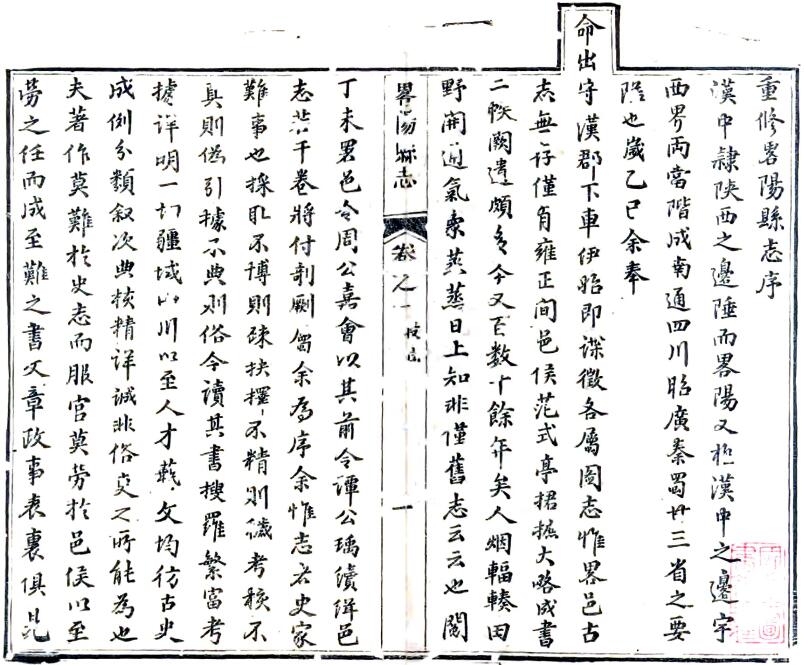 重修畧陽縣志序
漢中隸陝西之邊陲而畧陽又極漢中之邊宇
西界兩當階成南通四川昭廣秦蜀廿三省之要
隆也歲乙巳余奉
命出守漢郡下車伊始即諜徵各屬圖志惟畧邑古
志無存僅有雍正間邑侯范式亭捃摭大略成書
二帙闕遺頗多今又百數十餘年矣人烟輻輳田
野開通氣象蒸蒸日上知非僅舊志云云也閱
畧陽縣志 卷之一 一
丁未署邑令周公嘉會以其前令譚公瑀續緝邑
志若干卷將付剞劂屬余為序余惟志者史家
難事也採取不博則疎抉擇不精則穢考核不
真則偽引據不典則俗今讀其書搜羅繁富考
據詳明一切疆域山川以至人才藝文均仿古史
成例分類叙次典核精詳誠非俗吏之所能為也
夫著作莫難於史志而服官莫勞於邑侯以至
勞之任而成至難之書文章政事表裏俱見